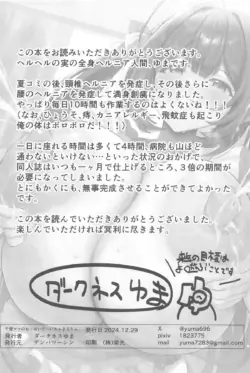 この本をお読みいただきありがとうございます。
ヘルヘルの実の全身ヘルニア人間、ゆまです。
夏コミの後、頸椎ヘルニアを発症し、その後さらに
腰のヘルニアを発症して満身創痍になりました。
やっぱり毎日10時間も作業するのはよくないね!!!
(なお、ひょうそ、痔、カニアレルギー、飛蚊症も起こり
俺の体はボロボロだ!!!)
一日に座れる時間は多くて4時間、病院も山ほど
通わないといけない…といった状況のおかげで、
同人誌はいつも一ヶ月で仕上げるところ、3倍の期間が
必要になってしまいました。
とにもかくにも、無事完成させることができてよかった
です。
この本を読んでいただきありがとうございました。
楽しんでいただければ冥利に尽きます。
ダークネスゆま
発行日 2024.12.29
発行者 ダークネスゆま
発行元 デンパマーシン
印刷 (株)栄光
X @yuma696
pixiv 1823775
mail yuma7283@gmail.com